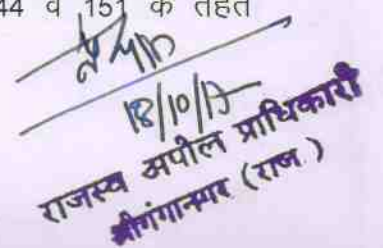 44 व 151 के तहत
18/10/17
राजस्व अपील प्राधिकारी
श्रीगंगानगर (राज.)